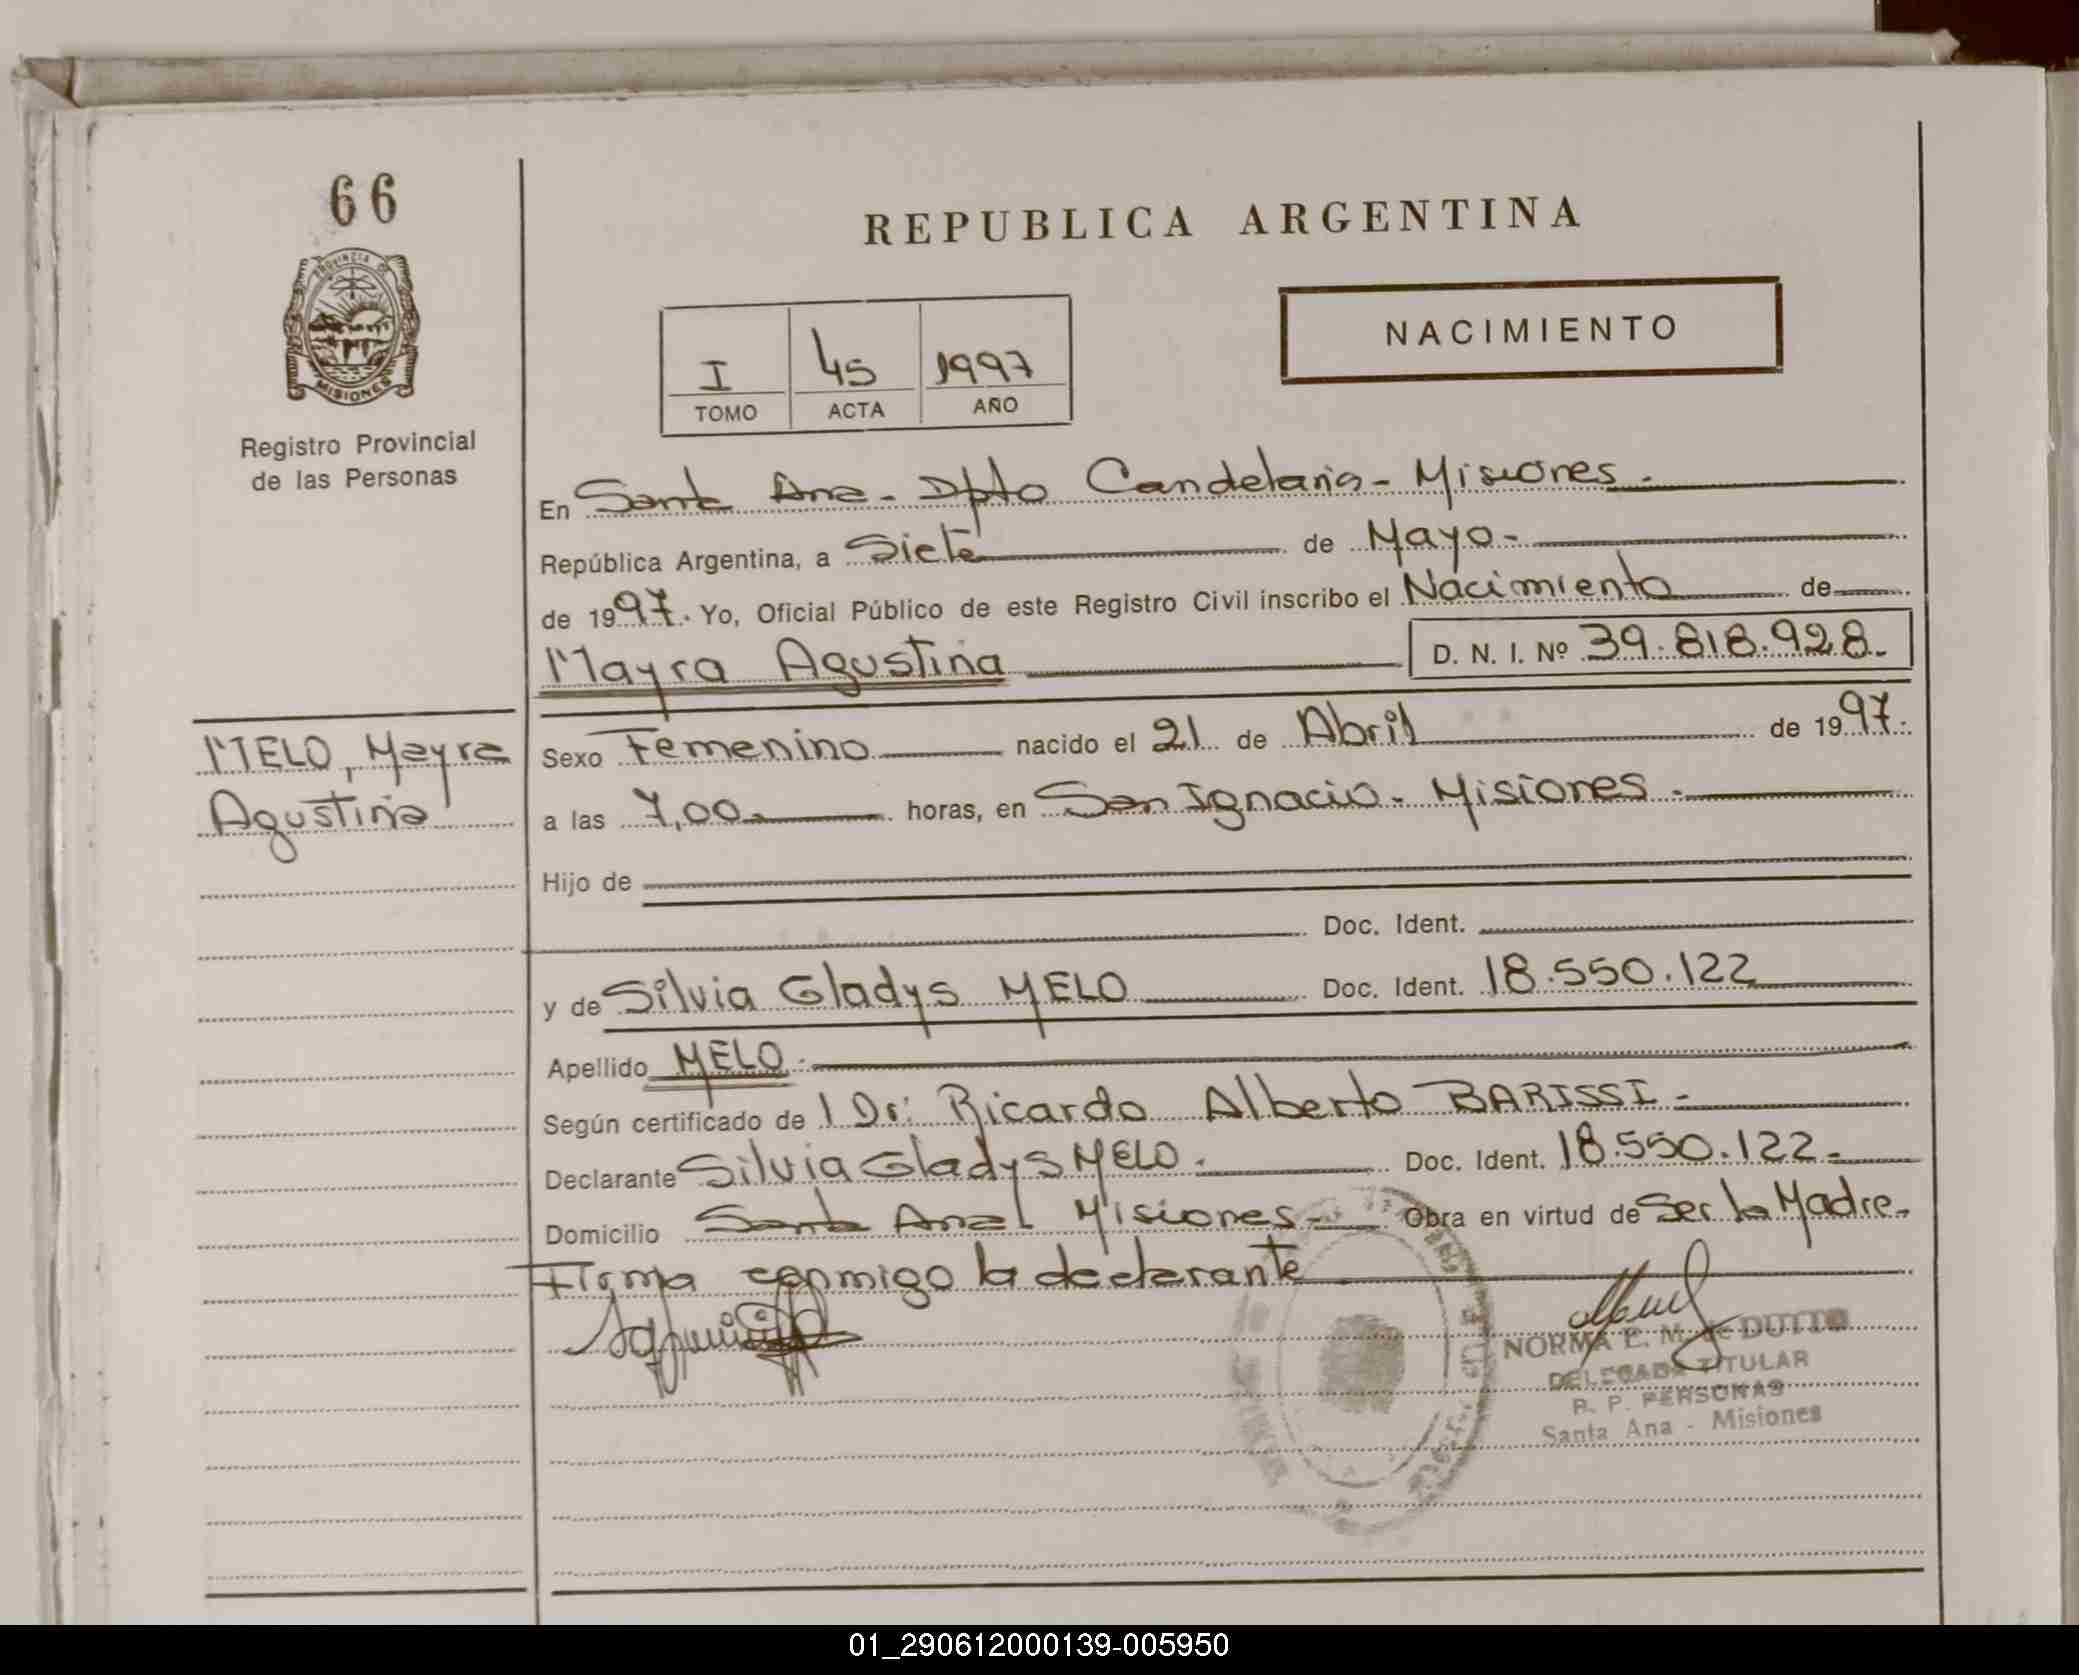 66
REPUBLICA ARGENTINA
PROVINCIA DE
MISIONES
Registro Provincial
de las Personas
I 45 1997
TOMO ACTA AÑO
NACIMIENTO
En Santa Ana - Dpto Candelaria - Misiones.
República Argentina, a Siete de Mayo -
de 1997. Yo, Oficial Público de este Registro Civil inscribo el Nacimiento de
Mayra Agustina D. N. I. Nº 39.818.928.
MELO, Mayra
Agustina
Sexo Femenino nacido el 21 de Abril de 1997.
a las 7,00 horas, en San Ignacio - Misiones.
Hijo de
Doc. Ident.
y de Silvia Gladys MELO Doc. Ident. 18.550.122
Apellido MELO.
Según certificado de l Dr: Ricardo Alberto BARISSI -
Declarante Silvia Gladys MELO. Doc. Ident. 18.550.122 -
Domicilio Santa Ana Misiones - Obra en virtud de Ser la Madre.
Firma conmigo la declarante
NORMA E. M. de DUTTO
DELEGADA TITULAR
R. P. PERSONAS
Santa Ana - Misiones
01_290612000139-005950